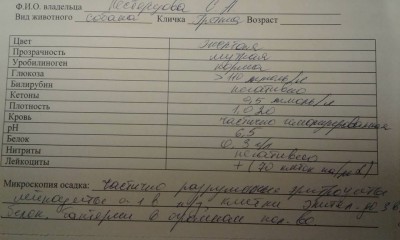 Ф.И.О. владельца Нестерцова О.А
Вид животного собака Кличка Возраст
Цвет желтая
Прозрачность мутная
Уробилиноген норма
Глюкоза >110 ммоль/л
Билирубин негативно
Кетоны 0,5 ммоль/л
Плотность 1.020
Кровь частично гемолизированная
pH 6,5
Белок 0,3 г/л
Нитриты негативно
Лейкоциты + (70
Микроскопия осадка: частично разрушенные эритроциты
лейкоциты 0-1 в п/з, клетки эпител-
белок. бактерии в огромном кол-во